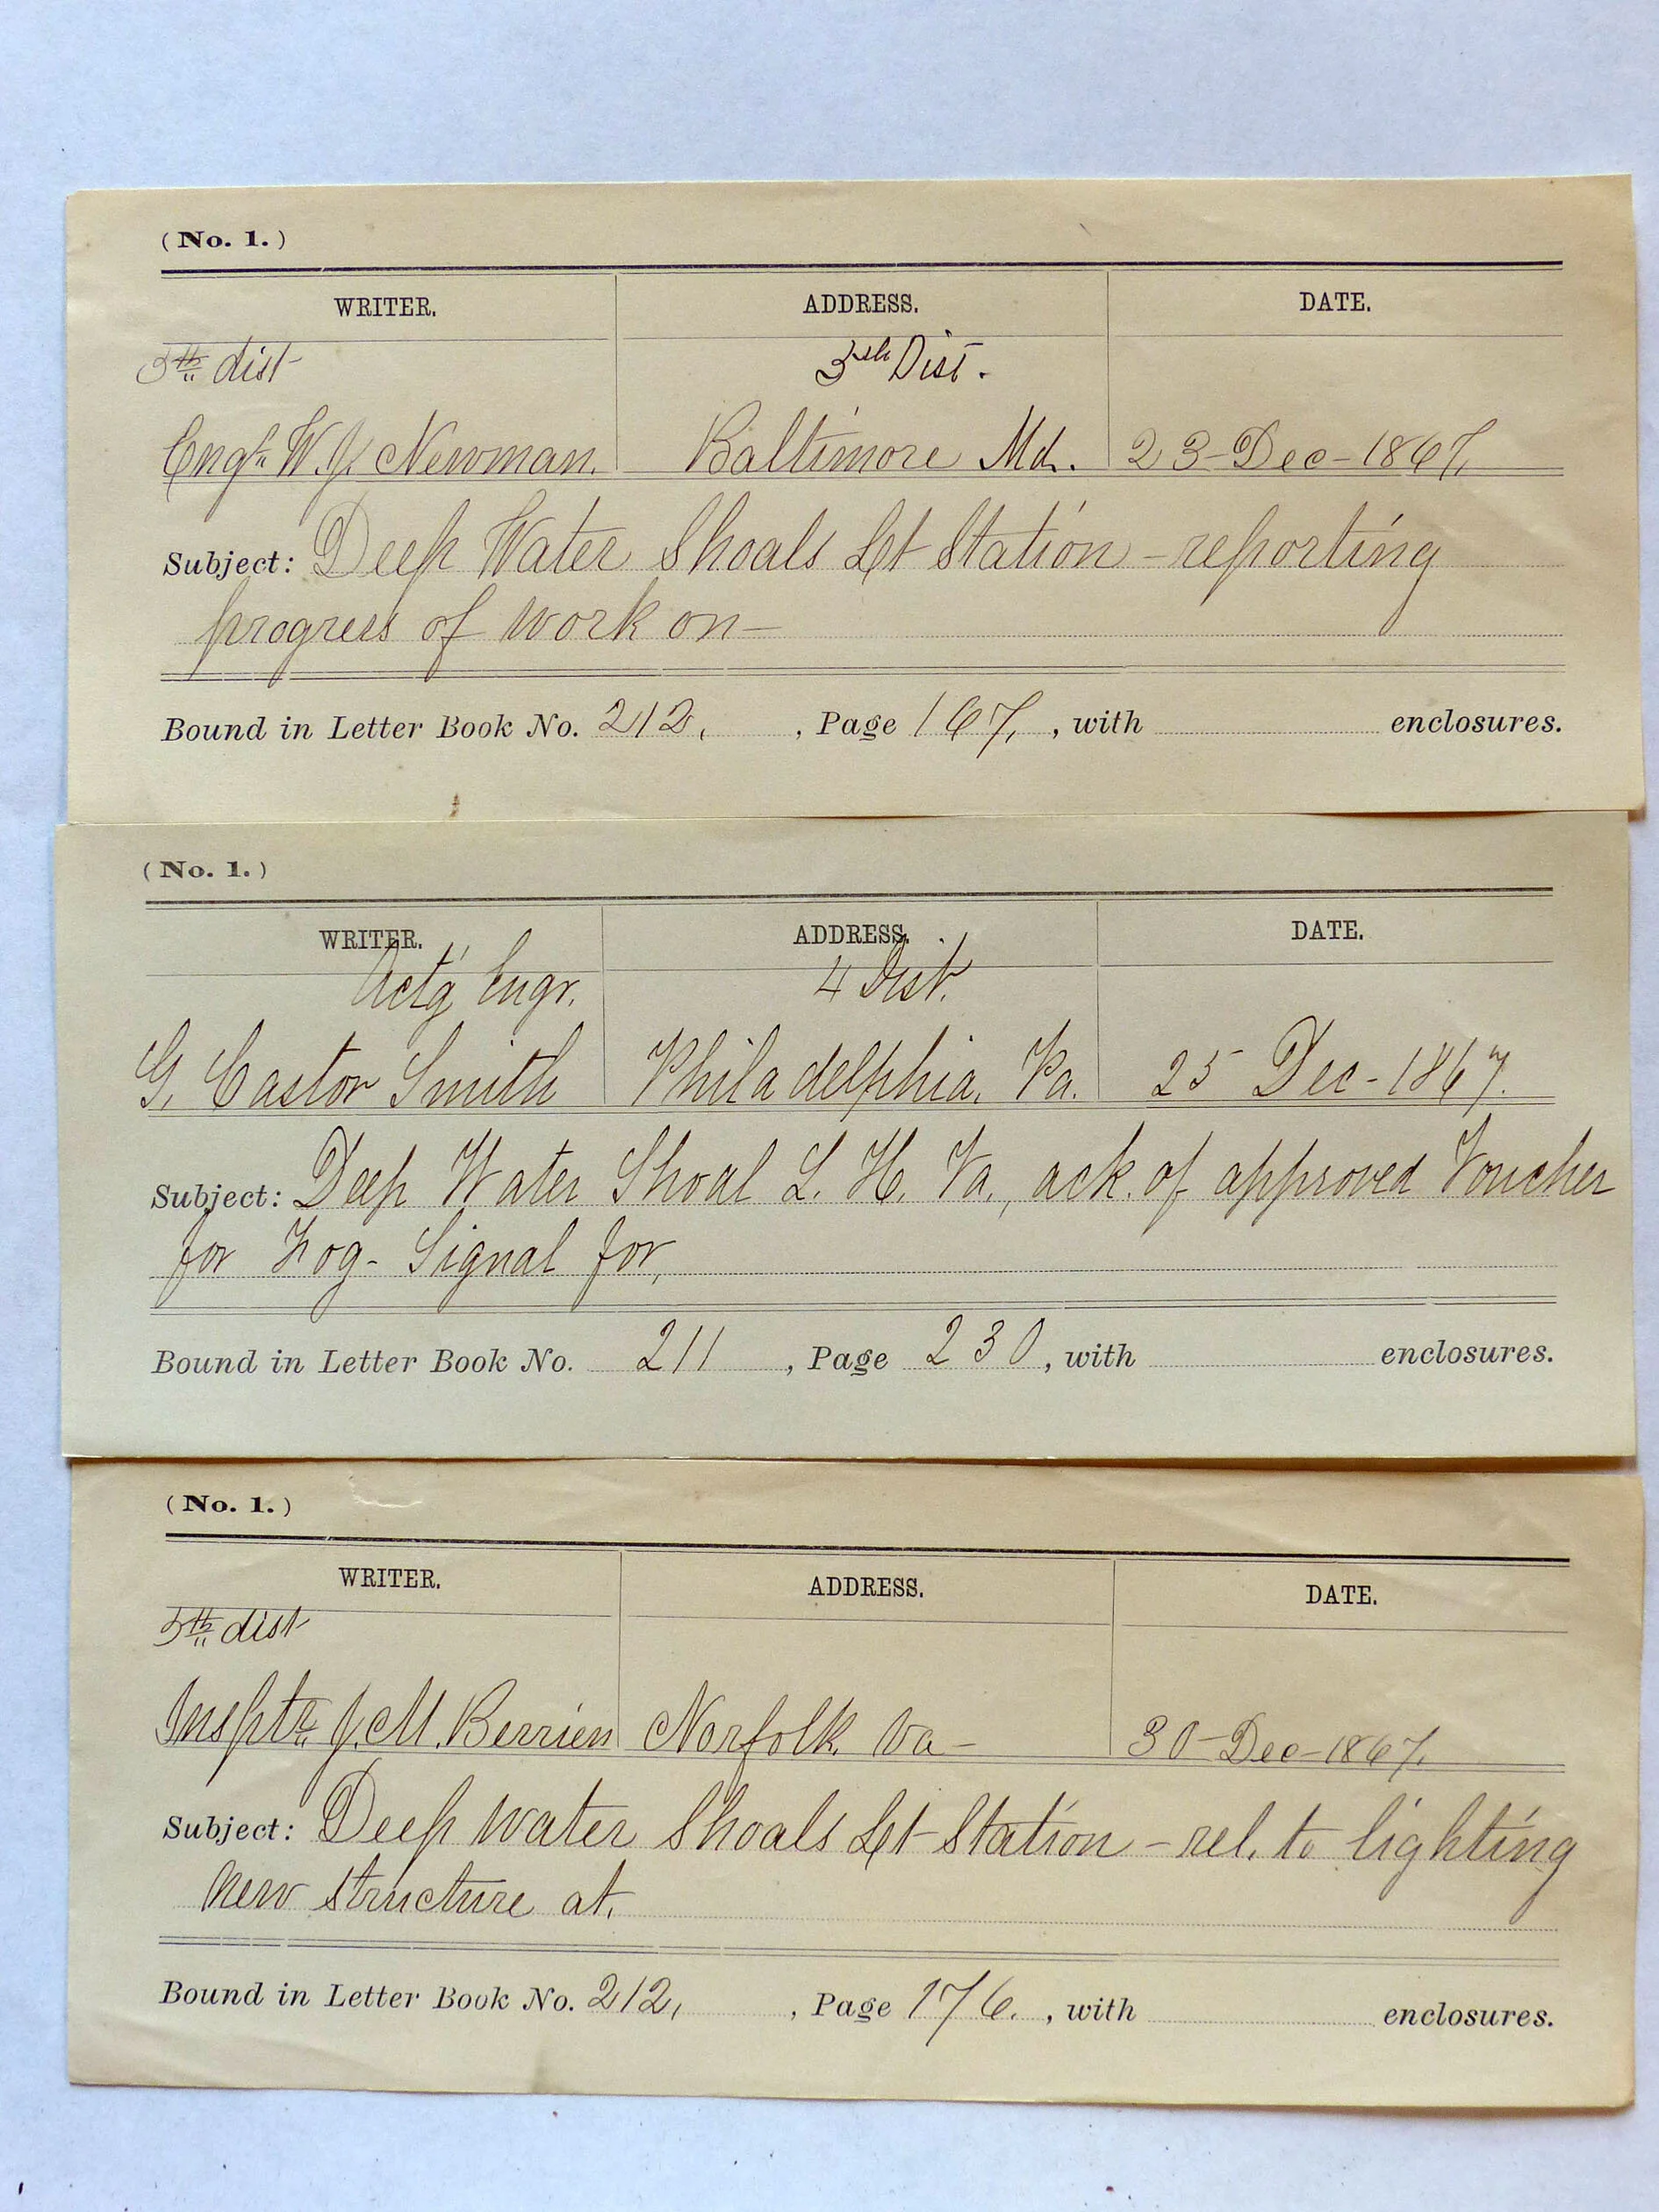 (No. 1.)
WRITER. ADDRESS. DATE.
5th dist 5th Dist.
Engr. W. J. Newman. Baltimore Md. 23-Dec-1867.
Subject: Deep Water Shoals Lt Station - reporting
progress of work on-
Bound in Letter Book No. 212, , Page 167, , with enclosures.
(No. 1.)
WRITER. ADDRESS. DATE.
Act'g Engr. 4 Dist.
G. Castor Smith Philadelphia, Pa. 25 Dec-1867.
Subject: Deep Water Shoal L. H. Va., ack. of approved Voucher
for Fog-Signal for,
Bound in Letter Book No. 211 , Page 230, with enclosures.
(No. 1.)
WRITER. ADDRESS. DATE.
5th dist
Insptr. J. M. Berrien Norfolk Va- 30-Dec-1867.
Subject: Deep Water Shoals Lt Station - rel. to lighting
new structure at.
Bound in Letter Book No. 212, , Page 176. , with enclosures.